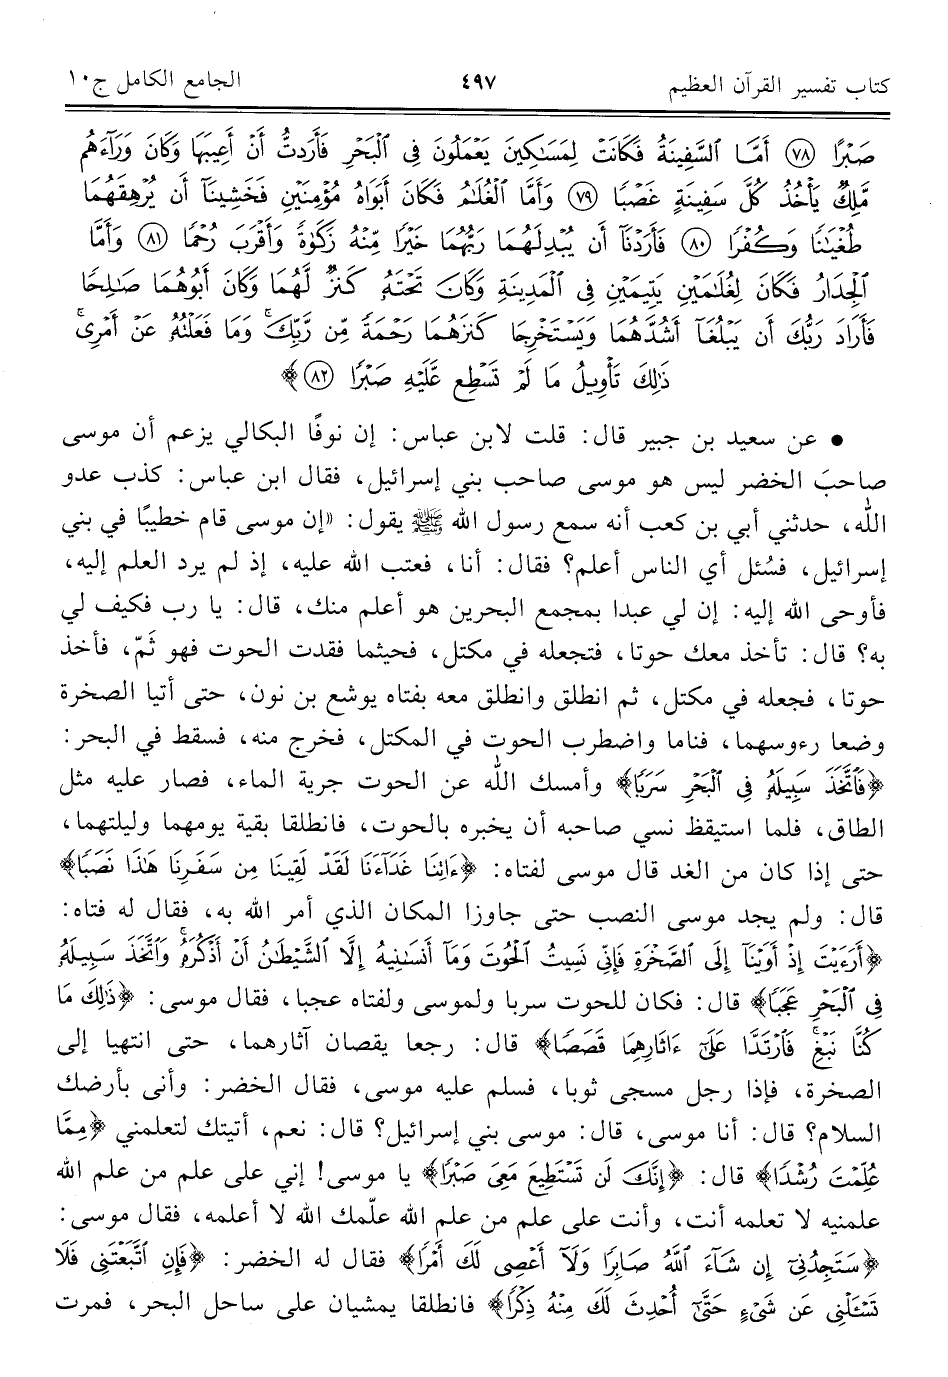 كتاب تفسير القرآن العظيم ٤٩٧ الجامع الكامل ج١٠
صَبْرًا ﴿٧٨﴾ أَمَّا ٱلسَّفِينَةُ فَكَانَتْ لِمَسَٰكِينَ يَعْمَلُونَ فِى ٱلْبَحْرِ فَأَرَدتُّ أَنْ أَعِيبَهَا وَكَانَ وَرَآءَهُم
مَّلِكٌ يَأْخُذُ كُلَّ سَفِينَةٍ غَصْبًا ﴿٧٩﴾ وَأَمَّا ٱلْغُلَٰمُ فَكَانَ أَبَوَاهُ مُؤْمِنَيْنِ فَخَشِينَآ أَن يُرْهِقَهُمَا
طُغْيَٰنًا وَكُفْرًا ﴿٨٠﴾ فَأَرَدْنَآ أَن يُبْدِلَهُمَا رَبُّهُمَا خَيْرًا مِّنْهُ زَكَوٰةً وَأَقْرَبَ رُحْمًا ﴿٨١﴾ وَأَمَّا
ٱلْجِدَارُ فَكَانَ لِغُلَٰمَيْنِ يَتِيمَيْنِ فِى ٱلْمَدِينَةِ وَكَانَ تَحْتَهُۥ كَنزٌ لَّهُمَا وَكَانَ أَبُوهُمَا صَٰلِحًا
فَأَرَادَ رَبُّكَ أَن يَبْلُغَآ أَشُدَّهُمَا وَيَسْتَخْرِجَا كَنزَهُمَا رَحْمَةً مِّن رَّبِّكَ ۚ وَمَا فَعَلْتُهُۥ عَنْ أَمْرِى ۚ
ذَٰلِكَ تَأْوِيلُ مَا لَمْ تَسْطِع عَّلَيْهِ صَبْرًا ﴿٨٢﴾﴾
• عن سعيد بن جبير قال: قلت لابن عباس: إن نوفًا البكالي يزعم أن موسى
صاحبَ الخضر ليس هو موسى صاحب بني إسرائيل، فقال ابن عباس: كذب عدو
الله، حدثني أبي بن كعب أنه سمع رسول الله ﷺ يقول: «إن موسى قام خطيبًا في بني
إسرائيل، فسُئل أي الناس أعلم؟ فقال: أنا، فعتب الله عليه، إذ لم يرد العلم إليه،
فأوحى الله إليه: إن لي عبدا بمجمع البحرين هو أعلم منك، قال: يا رب فكيف لي
به؟ قال: تأخذ معك حوتا، فتجعله في مكتل، فحيثما فقدت الحوت فهو ثَمّ، فأخذ
حوتا، فجعله في مكتل، ثم انطلق وانطلق معه بفتاه يوشع بن نون، حتى أتيا الصخرة
وضعا رءوسهما، فناما واضطرب الحوت في المكتل، فخرج منه، فسقط في البحر:
﴿فَٱتَّخَذَ سَبِيلَهُۥ فِى ٱلْبَحْرِ سَرَبًا﴾ وأمسك الله عن الحوت جرية الماء، فصار عليه مثل
الطاق، فلما استيقظ نسي صاحبه أن يخبره بالحوت، فانطلقا بقية يومهما وليلتهما،
حتى إذا كان من الغد قال موسى لفتاه: ﴿ءَاتِنَا غَدَآءَنَا لَقَدْ لَقِينَا مِن سَفَرِنَا هَٰذَا نَصَبًا﴾
قال: ولم يجد موسى النصب حتى جاوزا المكان الذي أمر الله به، فقال له فتاه:
﴿أَرَءَيْتَ إِذْ أَوَيْنَآ إِلَى ٱلصَّخْرَةِ فَإِنِّى نَسِيتُ ٱلْحُوتَ وَمَآ أَنسَىٰنِيهُ إِلَّا ٱلشَّيْطَٰنُ أَنْ أَذْكُرَهُۥ ۚ وَٱتَّخَذَ سَبِيلَهُۥ
فِى ٱلْبَحْرِ عَجَبًا﴾ قال: فكان للحوت سربا ولموسى ولفتاه عجبا، فقال موسى: ﴿ذَٰلِكَ مَا
كُنَّا نَبْغِ ۚ فَٱرْتَدَّا عَلَىٰٓ ءَاثَارِهِمَا قَصَصًا﴾ قال: رجعا يقصان آثارهما، حتى انتهيا إلى
الصخرة، فإذا رجل مسجى ثوبا، فسلم عليه موسى، فقال الخضر: وأنى بأرضك
السلام؟ قال: أنا موسى، قال: موسى بني إسرائيل؟ قال: نعم، أتيتك لتعلمني ﴿مِمَّا
عُلِّمْتَ رُشْدًا﴾ قال: ﴿إِنَّكَ لَن تَسْتَطِيعَ مَعِىَ صَبْرًا﴾ يا موسى! إني على علم من علم الله
علمنيه لا تعلمه أنت، وأنت على علم من علم الله علّمك الله لا أعلمه، فقال موسى:
﴿سَتَجِدُنِىٓ إِن شَآءَ ٱللَّهُ صَابِرًا وَلَآ أَعْصِى لَكَ أَمْرًا﴾ فقال له الخضر: ﴿فَإِنِ ٱتَّبَعْتَنِى فَلَا
تَسْـَٔلْنِى عَن شَىْءٍ حَتَّىٰٓ أُحْدِثَ لَكَ مِنْهُ ذِكْرًا﴾ فانطلقا يمشيان على ساحل البحر، فمرت